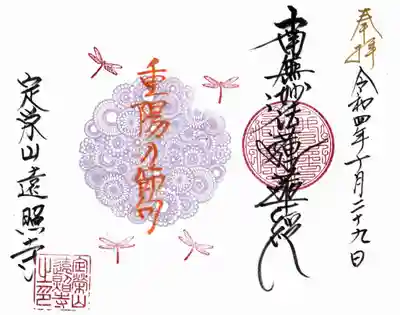 奉拝
令和四年十月二十九日
南無妙法蓮華経
重陽乃節句
定榮山遠照寺
定榮山
遠照寺
之印